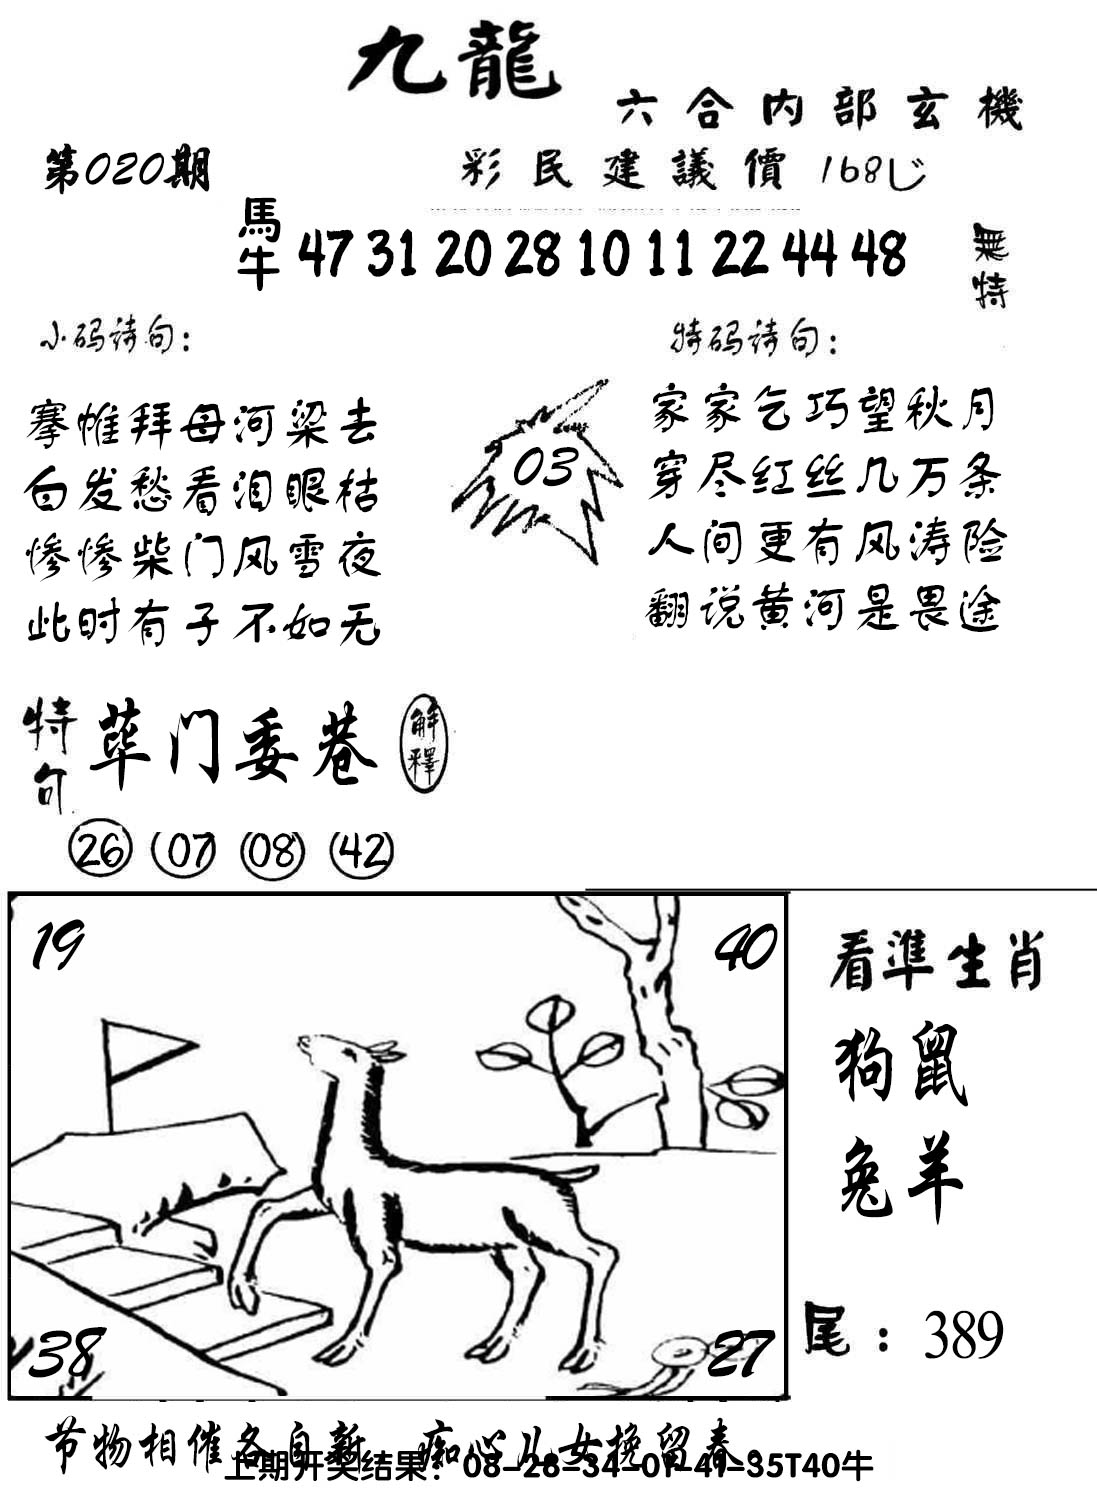 九龍
六合内部玄機
第020期
彩民建議價168
馬牛 47 31 20 28 10 11 22 44 48
無特
小码诗句：
搴帷拜母河梁去
白发愁看泪眼枯
惨惨柴门风雪夜
此时有子不如无
03
特码诗句：
家家乞巧望秋月
穿尽红丝几万条
人间更有风涛险
翻说黄河是畏途
特句 荜门委巷 解釋
26 07 08 42
19
40
38
27
看準生肖
狗鼠
兔羊
尾：389
节物相催各自新 痴心儿女挽留春。
上期开奖结果：08-28-34-01-41-35T40牛